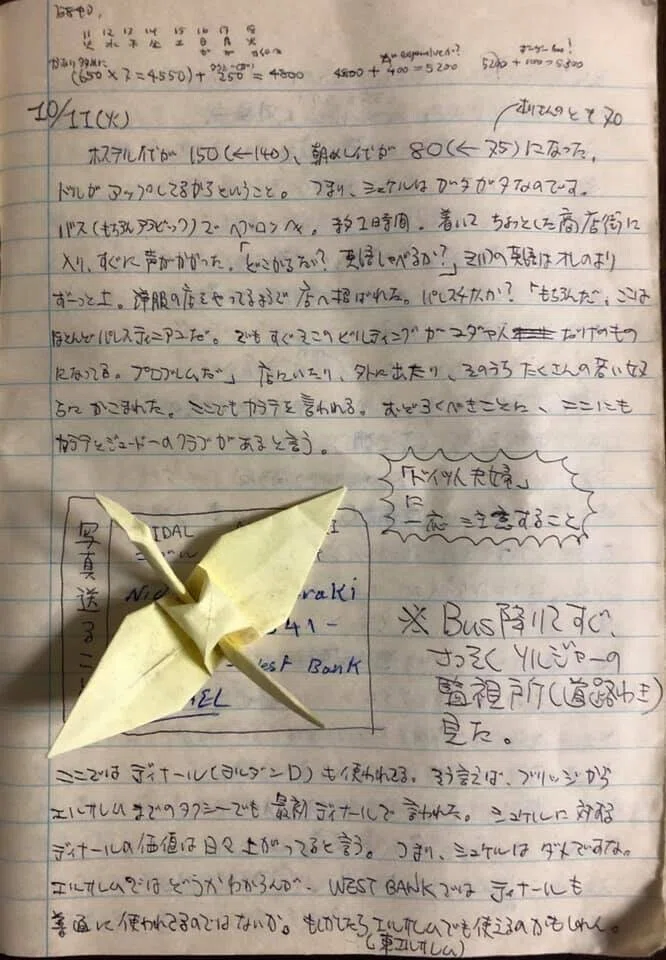 11 12 13 14 15 16 17 18
火 水 木 金 土 日 月 火
(650×7=4550)+250=4800 4800+400=5200
10/17(火)
ホステル代が150(←140)、朝メシ代が80(←75)になった。
ドルがアップしてるからということ。つまり、シュケルはガタガタなのです。
バス(もちろんアラビック)でヘブロンへ。約1時間。着いてちょっとした商店街に
入り、すぐに声がかかった。「どこからだ?英語しゃべるか?」ヤツの英語はオレのより
ずーっと上。洋服の店をやってるようで店へ招ばれた。パレスチナ人か?「もちろんだ、ここは
ほとんどパレスティニアンだ。でもすぐそこのビルディングがユダヤ人だけのもの
になってる。プロブレムだ」店にいたり、外に出たり、そのうちたくさんの若い奴
らにかこまれた。ここでもカラテを言われる。おどろくべきことに、ここにも
カラテとジュードーのクラブがあると言う。
「ドイツ人夫婦」
に
一応注意すること
写真送ること
NIDAL
West Bank
※Bus降りてすぐ、
さっそくソルジャーの
監視所(道路わき)
見た。
ここではディナール(ヨルダンD)も使われてる。そう言えば、ブリッジから
エルサレムまでのタクシーでも最初ディナールで言われた。シュケルに対する
ディナールの価値は日々上がってると言う。つまり、シュケルはダメですな。
エルサレムではどうかわからんが、WEST BANKではディナールも
普通に使われてるのではないか。もしかしたらエルサレムでも使えるのかもしれん。
(東エルサレム)